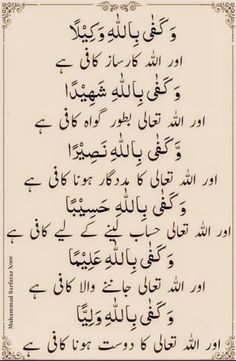 وَكَفٰى بِاللّٰهِ وَكِيْلًا
اور اللہ کارساز کافی ہے
وَكَفٰى بِاللّٰهِ شَهِيْدًا
اور اللہ تعالی بطور گواہ کافی ہے
وَّكَفٰى بِاللّٰهِ نَصِيْرًا
اور اللہ تعالی کا مددگار ہونا کافی ہے
وَكَفٰى بِاللّٰهِ حَسِيْبًا
اور اللہ تعالی حساب لینے کے لیے کافی ہے
وَكَفٰى بِاللّٰهِ عَلِيْمًا
اور اللہ تعالی جاننے والا کافی ہے
وَكَفٰى بِاللّٰهِ وَلِيًّا
اور اللہ تعالی کا دوست ہونا کافی ہے
Muhammad Sarfaraz Noor